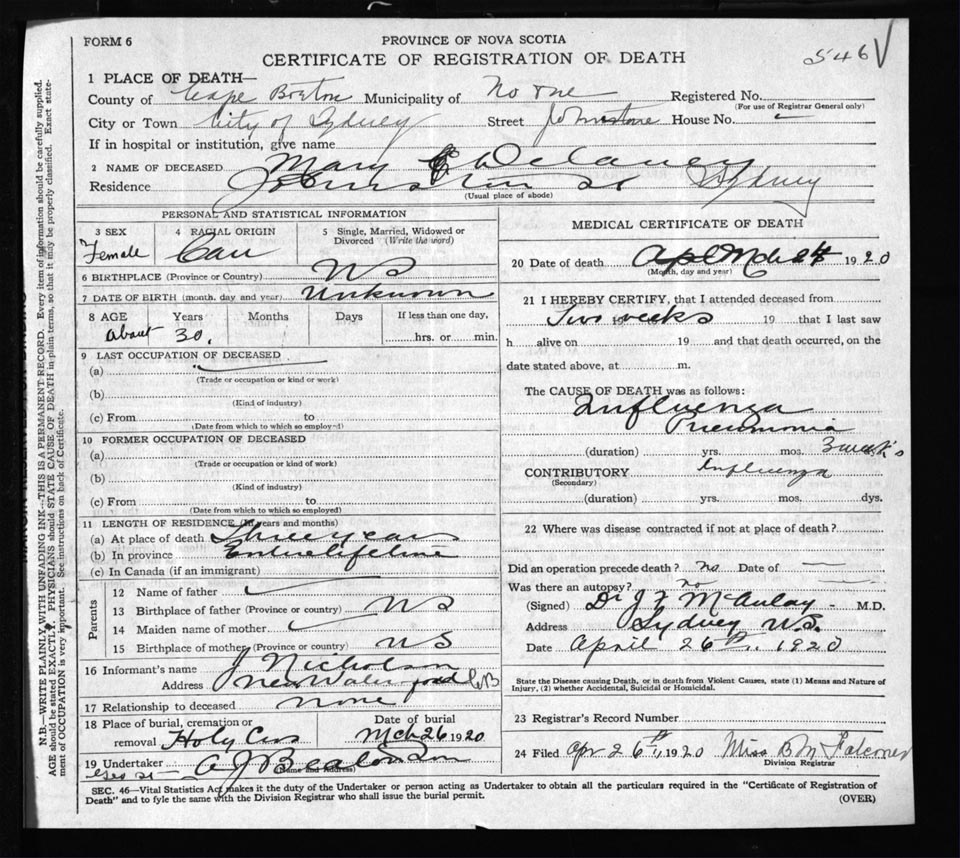 FORM 6
PROVINCE OF NOVA SCOTIA
CERTIFICATE OF REGISTRATION OF DEATH
546
1 PLACE OF DEATH—
County of Cape Breton Municipality of No one Registered No.
(For use of Registrar General only)
City or Town City of Sydney Street Johnstone House No.
If in hospital or institution, give name
2 NAME OF DECEASED Mary Delaney
Residence Johnston St Sydney
(Usual place of abode)
PERSONAL AND STATISTICAL INFORMATION
3 SEX 4 RACIAL ORIGIN 5 Single, Married, Widowed or Divorced (Write the word)
Female Can
6 BIRTHPLACE (Province or Country) NS
7 DATE OF BIRTH (month, day and year) Unknown
8 AGE Years Months Days If less than one day,
about 30. hrs. or min.
9 LAST OCCUPATION OF DECEASED
(a)
(Trade or occupation or kind or work)
(b)
(Kind of industry)
(c) From to
(Date from which to which so employed)
10 FORMER OCCUPATION OF DECEASED
(a)
(Trade or occupation or kind of work)
(b)
(Kind of industry)
(c) From to
(Date from which to which so employed)
11 LENGTH OF RESIDENCE (in years and months)
(a) At place of death Three years
(b) In province Entire lifetime
(c) In Canada (if an immigrant)
Parents
12 Name of father
13 Birthplace of father (Province or country) NS
14 Maiden name of mother
15 Birthplace of mother (Province or country) NS
16 Informant's name J Nicholson
Address New Waterford CB
17 Relationship to deceased none
18 Place of burial, cremation or removal Holy Cross Date of burial Mch 26 1920
19 Undertaker A J Beaton
(Name and Address)
MEDICAL CERTIFICATE OF DEATH
20 Date of death Mch 24 1920
(Month, day and year)
21 I HEREBY CERTIFY, that I attended deceased from
Two weeks 19 that I last saw
h alive on 19 and that death occurred, on the
date stated above, at m.
The CAUSE OF DEATH was as follows:
Influenza
Pneumonia
(duration) yrs. mos. 3 weeks
CONTRIBUTORY Influenza
(Secondary)
(duration) yrs. mos. dys.
22 Where was disease contracted if not at place of death?
Did an operation precede death? no Date of
Was there an autopsy? no
(Signed) Dr J F McAulay M.D.
Address Sydney N.S.
Date April 26th, 1920
State the Disease causing Death, or in death from Violent Causes, state (1) Means and Nature of
Injury, (2) whether Accidental, Suicidal or Homicidal.
23 Registrar's Record Number
24 Filed Apr 26th, 1920 Miss B M Falconer
Division Registrar
SEC. 46—Vital Statistics Act makes it the duty of the Undertaker or person acting as Undertaker to obtain all the particulars required in the "Certificate of Registration of
Death" and to fyle the same with the Division Registrar who shall issue the burial permit.
(OVER)
N.B.—WRITE PLAINLY, WITH UNFADING INK—THIS IS A PERMANENT RECORD. Every item of information should be carefully supplied.
AGE should be stated EXACTLY. PHYSICIANS should STATE CAUSE OF DEATH in plain terms, so that it may be properly classified. Exact state-
ment of OCCUPATION is very important. See instructions on back of Certificate.